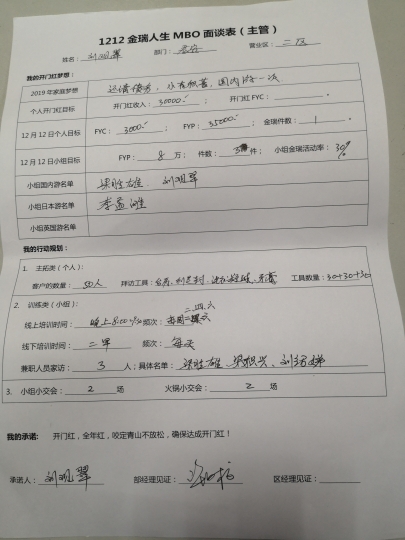 1212 金瑞人生 MBO 面谈表（主管）
姓名： 刘观翠 部门： 营业区： 二区
我的开门红梦想：
2019 年家庭梦想 还清债务，水有积蓄，国内游一次
个人开门红目标 开门红收入：30000 ； 开门红 FYC： 。
12 月 12 日个人目标 FYC： 3000 ； FYP： 35000 ； 金瑞件数： 1 。
12 月 12 日小组目标 FYP： 8 万； 件数： 3 件； 小组金瑞活动率： 30% 。
小组国内游名单 梁胜雄、刘观翠
小组日本游名单 李孟雄
小组英国游名单
我的行动规划：
1. 主拓类（个人）：
客户的数量： 50人 拜访工具： 台历、利是封、 工具数量：30+30+30
2. 训练类（小组）： 二、四、六
线上培训时间： 晚上8:00 频次：
线下培训时间： 二早 频次： 每天
兼职人员家访： 3 人；具体名单： 梁胜雄、梁振兴、刘
3. 小组小交会： 2 场 火锅小交会： 2 场
我的承诺： 开门红，全年红，咬定青山不放松，确保达成开门红！
承诺人： 刘观翠 部经理见证： 区经理见证：